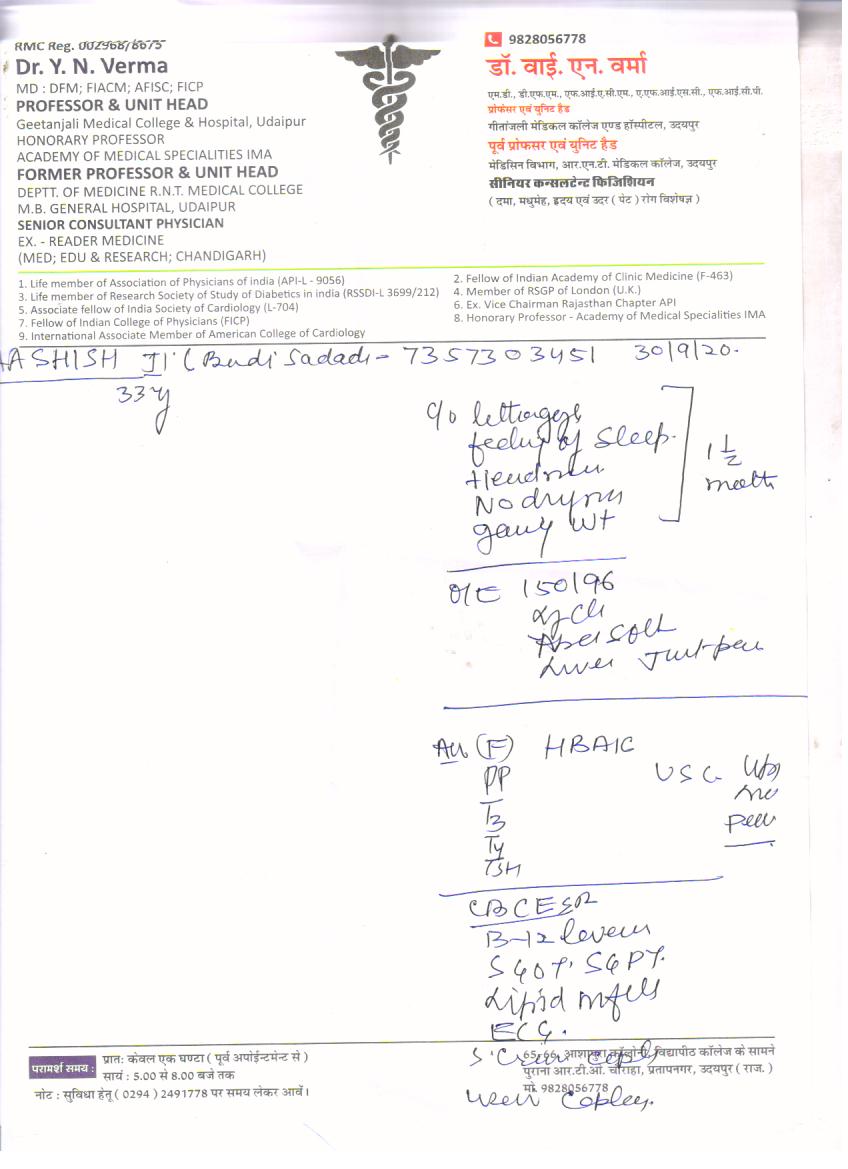 RMC Reg. 002968/6675
Dr. Y. N. Verma
MD : DFM; FIACM; AFISC; FICP
PROFESSOR & UNIT HEAD
Geetanjali Medical College & Hospital, Udaipur
HONORARY PROFESSOR
ACADEMY OF MEDICAL SPECIALITIES IMA
FORMER PROFESSOR & UNIT HEAD
DEPTT. OF MEDICINE R.N.T. MEDICAL COLLEGE
M.B. GENERAL HOSPITAL, UDAIPUR
SENIOR CONSULTANT PHYSICIAN
EX. - READER MEDICINE
(MED; EDU & RESEARCH; CHANDIGARH)
9828056778
डॉ. वाई. एन. वर्मा
एम.डी., डी.एफ.एम., एफ.आई.ए.सी.एम., ए.एफ.आई.एस.सी., एफ.आई.सी.पी.
प्रोफेसर एवं यूनिट हैड
गीतांजली मेडिकल कॉलेज एण्ड हॉस्पीटल, उदयपुर
पूर्व प्रोफसर एवं यूनिट हैड
मेडिसिन विभाग, आर.एन.टी. मेडिकल कॉलेज, उदयपुर
सीनियर कन्सलटेन्ट फिजिशियन
( दमा, मधुमेह, हृदय एवं उदर ( पेट ) रोग विशेषज्ञ )
1. Life member of Association of Physicians of india (API-L - 9056)
2. Fellow of Indian Academy of Clinic Medicine (F-463)
3. Life member of Research Society of Study of Diabetics in india (RSSDI-L 3699/212)
4. Member of RSGP of London (U.K.)
5. Associate fellow of India Society of Cardiology (L-704)
6. Ex. Vice Chairman Rajasthan Chapter API
7. Fellow of Indian College of Physicians (FICP)
8. Honorary Professor - Academy of Medical Specialities IMA
9. International Associate Member of American College of Cardiology
AASHISH JI (Budi Sadadi - 7357303451 30/9/20.
33y
c/o
feeling of Sleep.
1 1/2
No
Wt
O/E 150/96
Soft
Liver
(F) HBA1C
PP
T3
T4
TSH
USG
CBC ESR
B-12 levels
SGOT, SGPT.
Lipid
ECG.
S'
परामर्श समय :
प्रातः केवल एक घण्टा ( पूर्व अपोईन्टमेन्ट से )
सायं : 5.00 से 8.00 बजे तक
नोट : सुविधा हेतू ( 0294 ) 2491778 पर समय लेकर आवें।
65-66, आशापुरा कॉलोनी, विद्यापीठ कॉलेज के सामने
पुराना आर.टी.ओ. चौराहा, प्रतापनगर, उदयपुर ( राज. )
मो. 9828056778